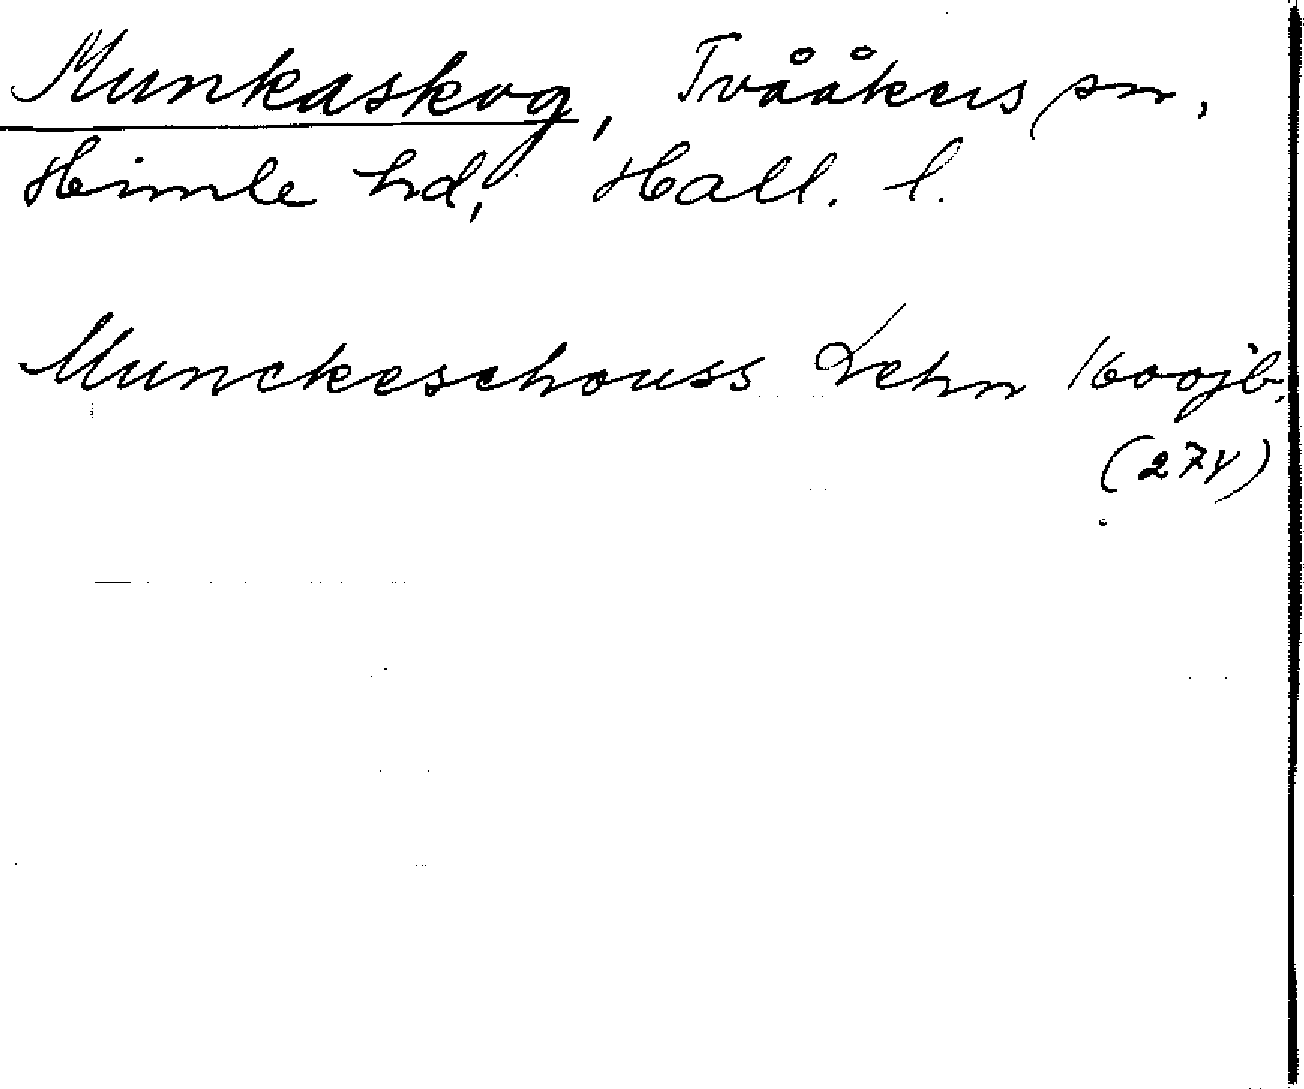 Munkaskog, Tvååkers sn,
Himle hd, Hall. l.
Munckeschouss Lehn 1600 jb.
(27v)